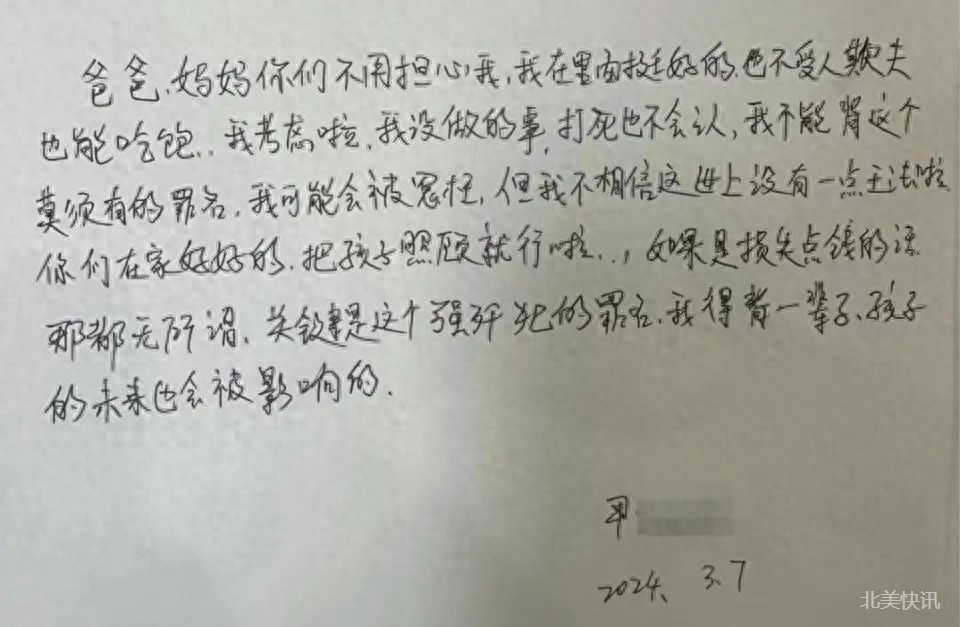 爸爸、妈妈你们不用担心我,我在里面挺好的.也不受人欺夫
也能吃饱..我考虑啦.我没做的事,打死也不会认,我不能背这个
莫须有的罪名.我可能会被冤枉,但我不相信这世上没有一点王法啦.
你们在家好好的.把孩子照顾就行啦..,如果是损失点钱的话
那都无所谓.关键是这个强奸犯的罪名.我得背一辈子、孩子
的未来也会被影响的.
甲.
2024、3.7
北美快讯